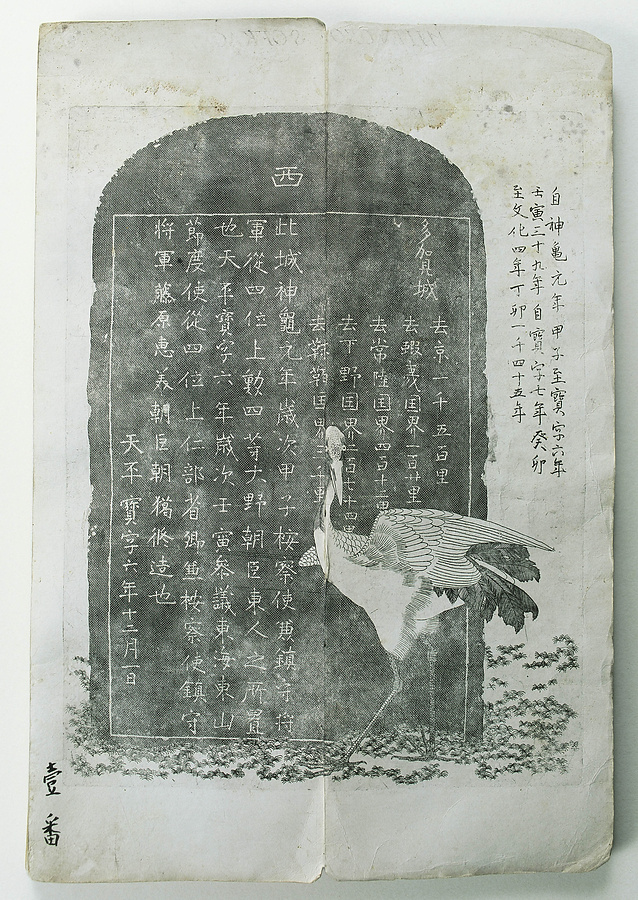 自神亀元年甲子至寶字六年
壬寅三十九年自寶字七年癸卯
至文化四年丁卯一千四十五年
西
多賀城
去京一千五百里
去蝦夷国界一百廿里
去常陸国界四百十二里
去下野国界二百七十四里
去靺鞨国界三千里
此城神龜元年歳次甲子按察使兼鎮守将
軍從四位上勲四等大野朝臣東人之所置
也天平寶字六年歳次壬寅參議東海東山
節度使從四位上仁部省卿兼按察使鎮守
将軍藤原惠美朝臣朝獦修造也
天平寶字六年十二月一日
壹番